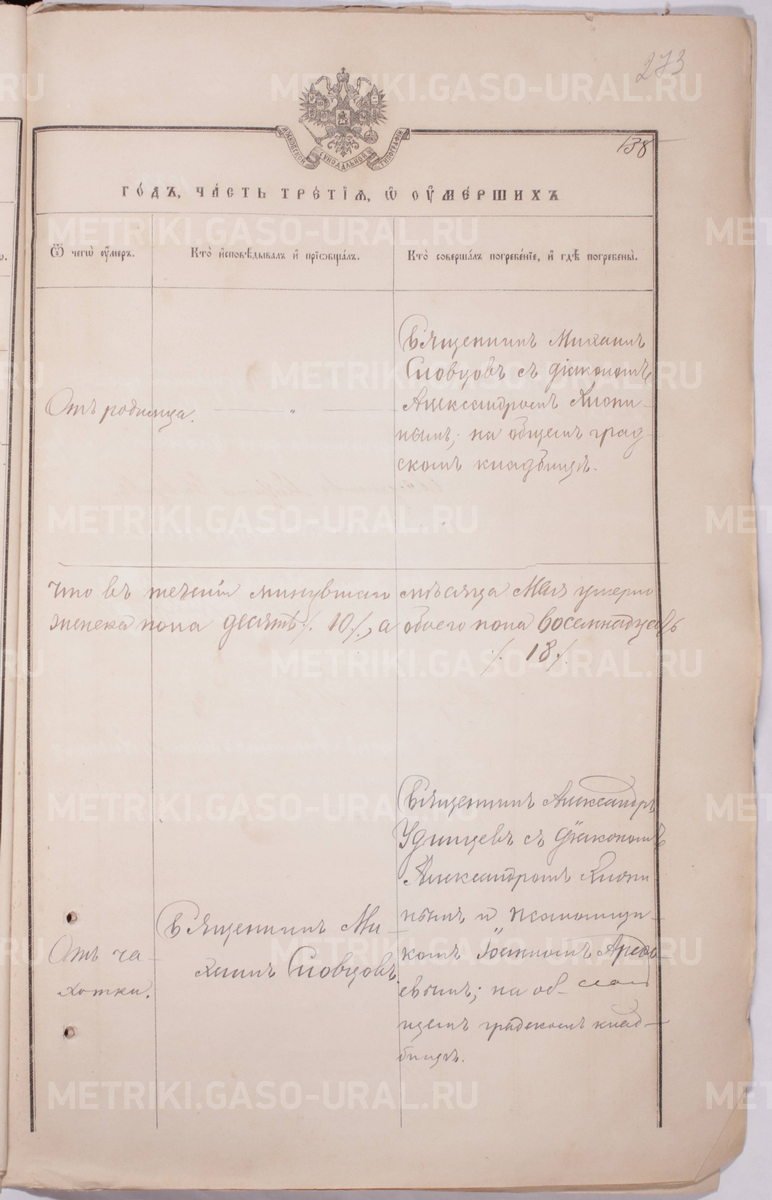 273
138
МОСКОВСКОЙ СѴНОДАЛЬНОЙ ТИПОГРАФІИ
ГОДЪ, ЧАСТЬ ТРЕТІЯ, Ѿ ОУМЕРШИХЪ
Ѿ чегѡ оумеръ.
Кто исповѣдывалъ и приобщалъ.
Кто совершалъ погребеніе, и гдѣ погребены.
Отъ родимца.
"
Священникъ Михаилъ
Словцовъ съ діакономъ
Александромъ
нымъ; на общемъ град-
скомъ кладбищѣ.
что въ теченіи минувшаго мѣсяца Мая умерло
женска пола десять ./. 10 ./., а обоего пола восемнадцать
./. 18 ./.
Отъ ча-
хотки.
Священникъ Ми-
хаилъ Словцовъ
Священникъ Александръ
Удинцевъ съ діакономъ
Александромъ
нымъ и псаломщи-
комъ Іоанномъ
евымъ; на об-
щемъ градскомъ клад-
бищѣ.
METRIKI.GASO-URAL.RU